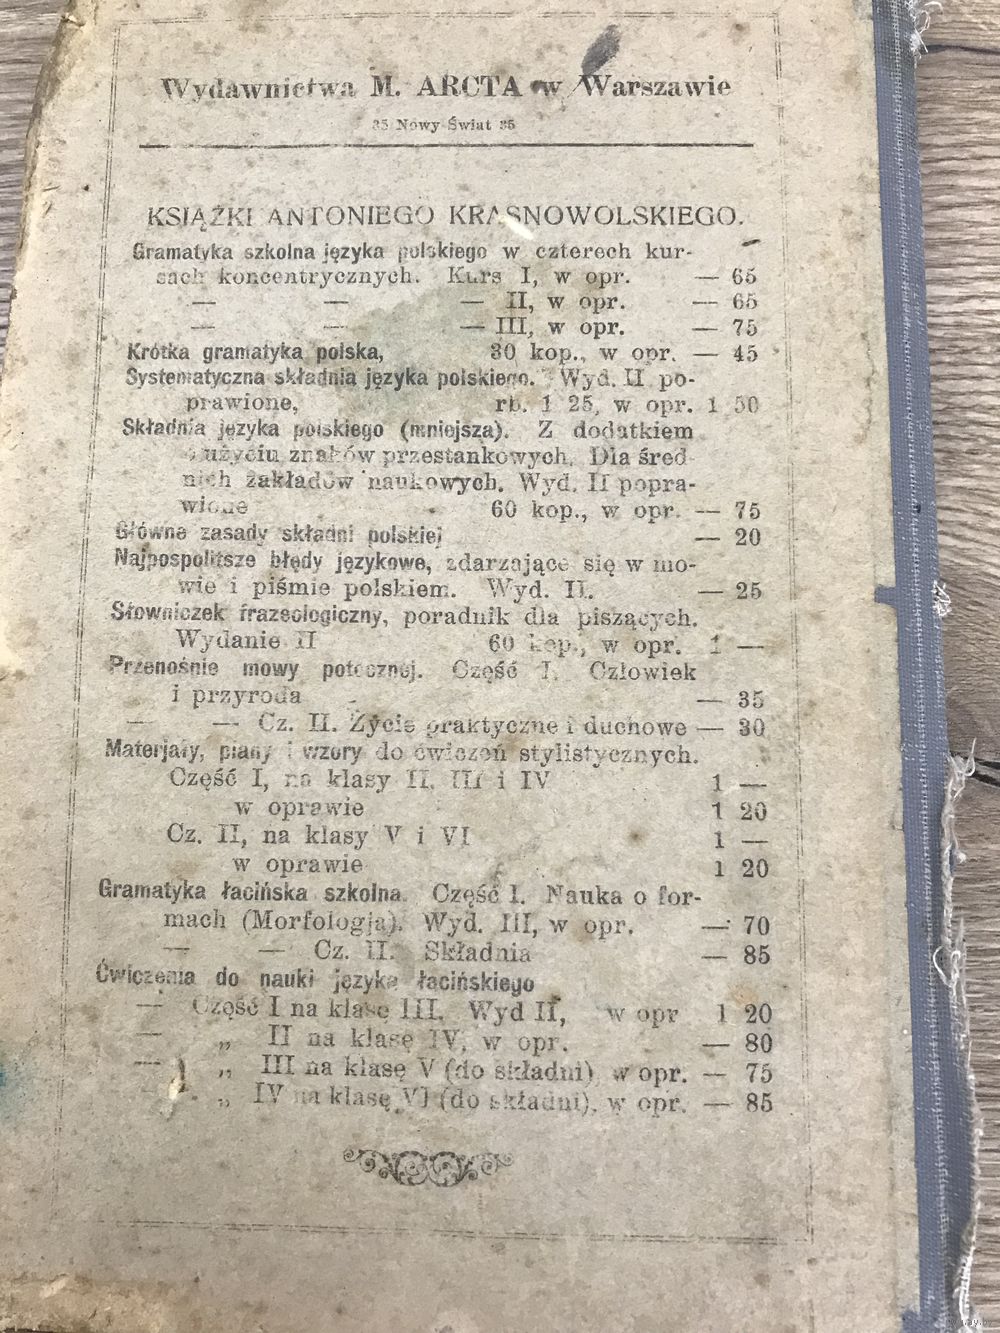 Wydawnictwa M. ARCTA w Warszawie
35 Nowy-Świat 35
KSIĄŻKI ANTONIEGO KRASNOWOLSKIEGO.
Gramatyka szkolna języka polskiego w czterech kur-
sach koncentrycznych. Kurs I, w opr. — 65
— — — II, w opr. — 65
— — — III, w opr. — 75
Krótka gramatyka polska, 30 kop., w opr. — 45
Systematyczna składnia języka polskiego. Wyd. II po-
prawione, rb. 1 25, w opr. 1 50
Składnia języka polskiego (mniejsza). Z dodatkiem
o użyciu znaków przestankowych. Dla śred-
nich zakładów naukowych. Wyd. II popra-
wione 60 kop., w opr. — 75
Główne zasady składni polskiej — 20
Najpospolitsze błędy językowe, zdarzające się w mo-
wie i piśmie polskiem. Wyd. II. — 25
Słowniczek frazeologiczny, poradnik dla piszących.
Wydanie II 60 kop., w opr. 1 —
Przenośnie mowy potocznej. Część I. Człowiek
i przyroda — 35
— — Cz. II. Życie praktyczne i duchowe — 30
Materjały, plany i wzory do ćwiczeń stylistycznych.
Część I, na klasy II, III i IV 1 —
w oprawie 1 20
Cz. II, na klasy V i VI 1 —
w oprawie 1 20
Gramatyka łacińska szkolna. Część I. Nauka o for-
mach (Morfologja). Wyd. III, w opr. — 70
— — Cz. II. Składnia — 85
Ćwiczenia do nauki języka łacińskiego
— Część I na klasę III. Wyd II, w opr 1 20
— „ II na klasę IV, w opr. — 80
— „ III na klasę V (do składni) w opr. — 75
„ IV na klasę VI (do składni), w opr. — 85